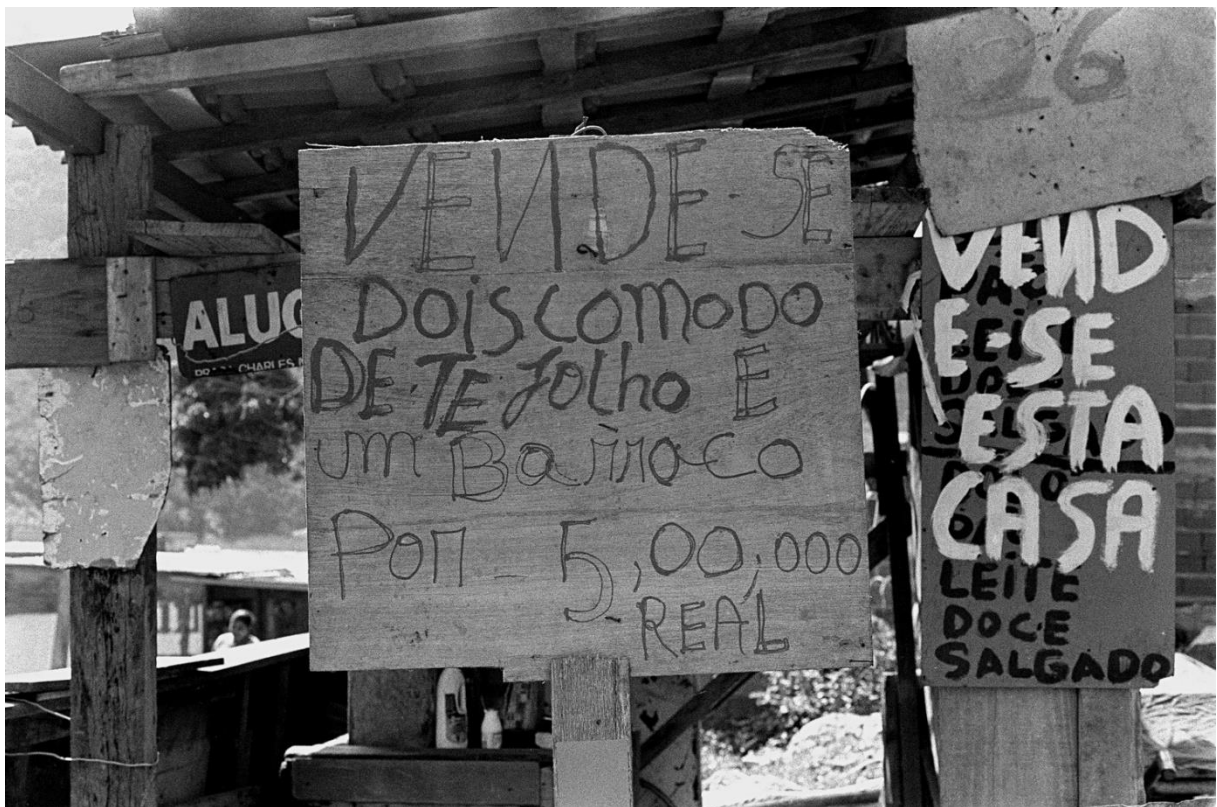 26
VENDE-SE
DOIS COMODO
DE.TEJOLHO E
UM BARRACO
POR - 5,00,000
REAL
ALUG
VEND
E-SE
ESTA
CASA
LEITE
DOCE
SALGADO